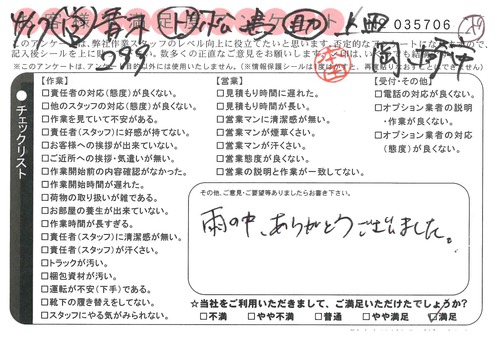 035706
このアンケートは、弊社作業スタッフのレベル向上に役立てたいと思います。否定的な
数多くの正直なご意見を
※このアンケートは、アンケート目的以外には使用いたしません。
チェックリスト
【作業】
□責任者の対応(態度)が良くない。
□他のスタッフの対応(態度)が良くない。
□作業を見ていて不安がある。
□責任者(スタッフ)に好感が持てない。
□お客様への挨拶が出来ていない。
□ご近所への挨拶・気遣いが無い。
□作業開始前の内容確認がなかった。
□作業開始時間が遅れた。
□荷物の取り扱いが雑である。
□お部屋の養生が出来ていない。
□作業時間が長すぎる。
□責任者(スタッフ)に清潔感が無い。
□責任者(スタッフ)が汗くさい。
□トラックが汚い。
□梱包資材が汚い。
□運転が不安(下手)である。
□靴下の履き替えをしてない。
□スタッフにやる気がみられない。
【営業】
□見積もり時間に遅れた。
□見積もり時間が長い。
□営業マンに清潔感が無い。
□営業マンが煙草くさい。
□営業マンが汗くさい。
□営業態度が良くない。
□営業の説明と作業が一致してない。
【受付・その他】
□電話の対応が良くない。
□オプション業者の説明
・作業が良くない。
□オプション業者の対応
(態度)が良くない。
その他、ご意見・ご要望等ありましたらお書き下さい。
雨の中、ありがとうございました。
☆当社をご利用いただきまして、ご満足いただけたでしょうか?
□不満 □やや不満 □普通 □やや満足 □満足